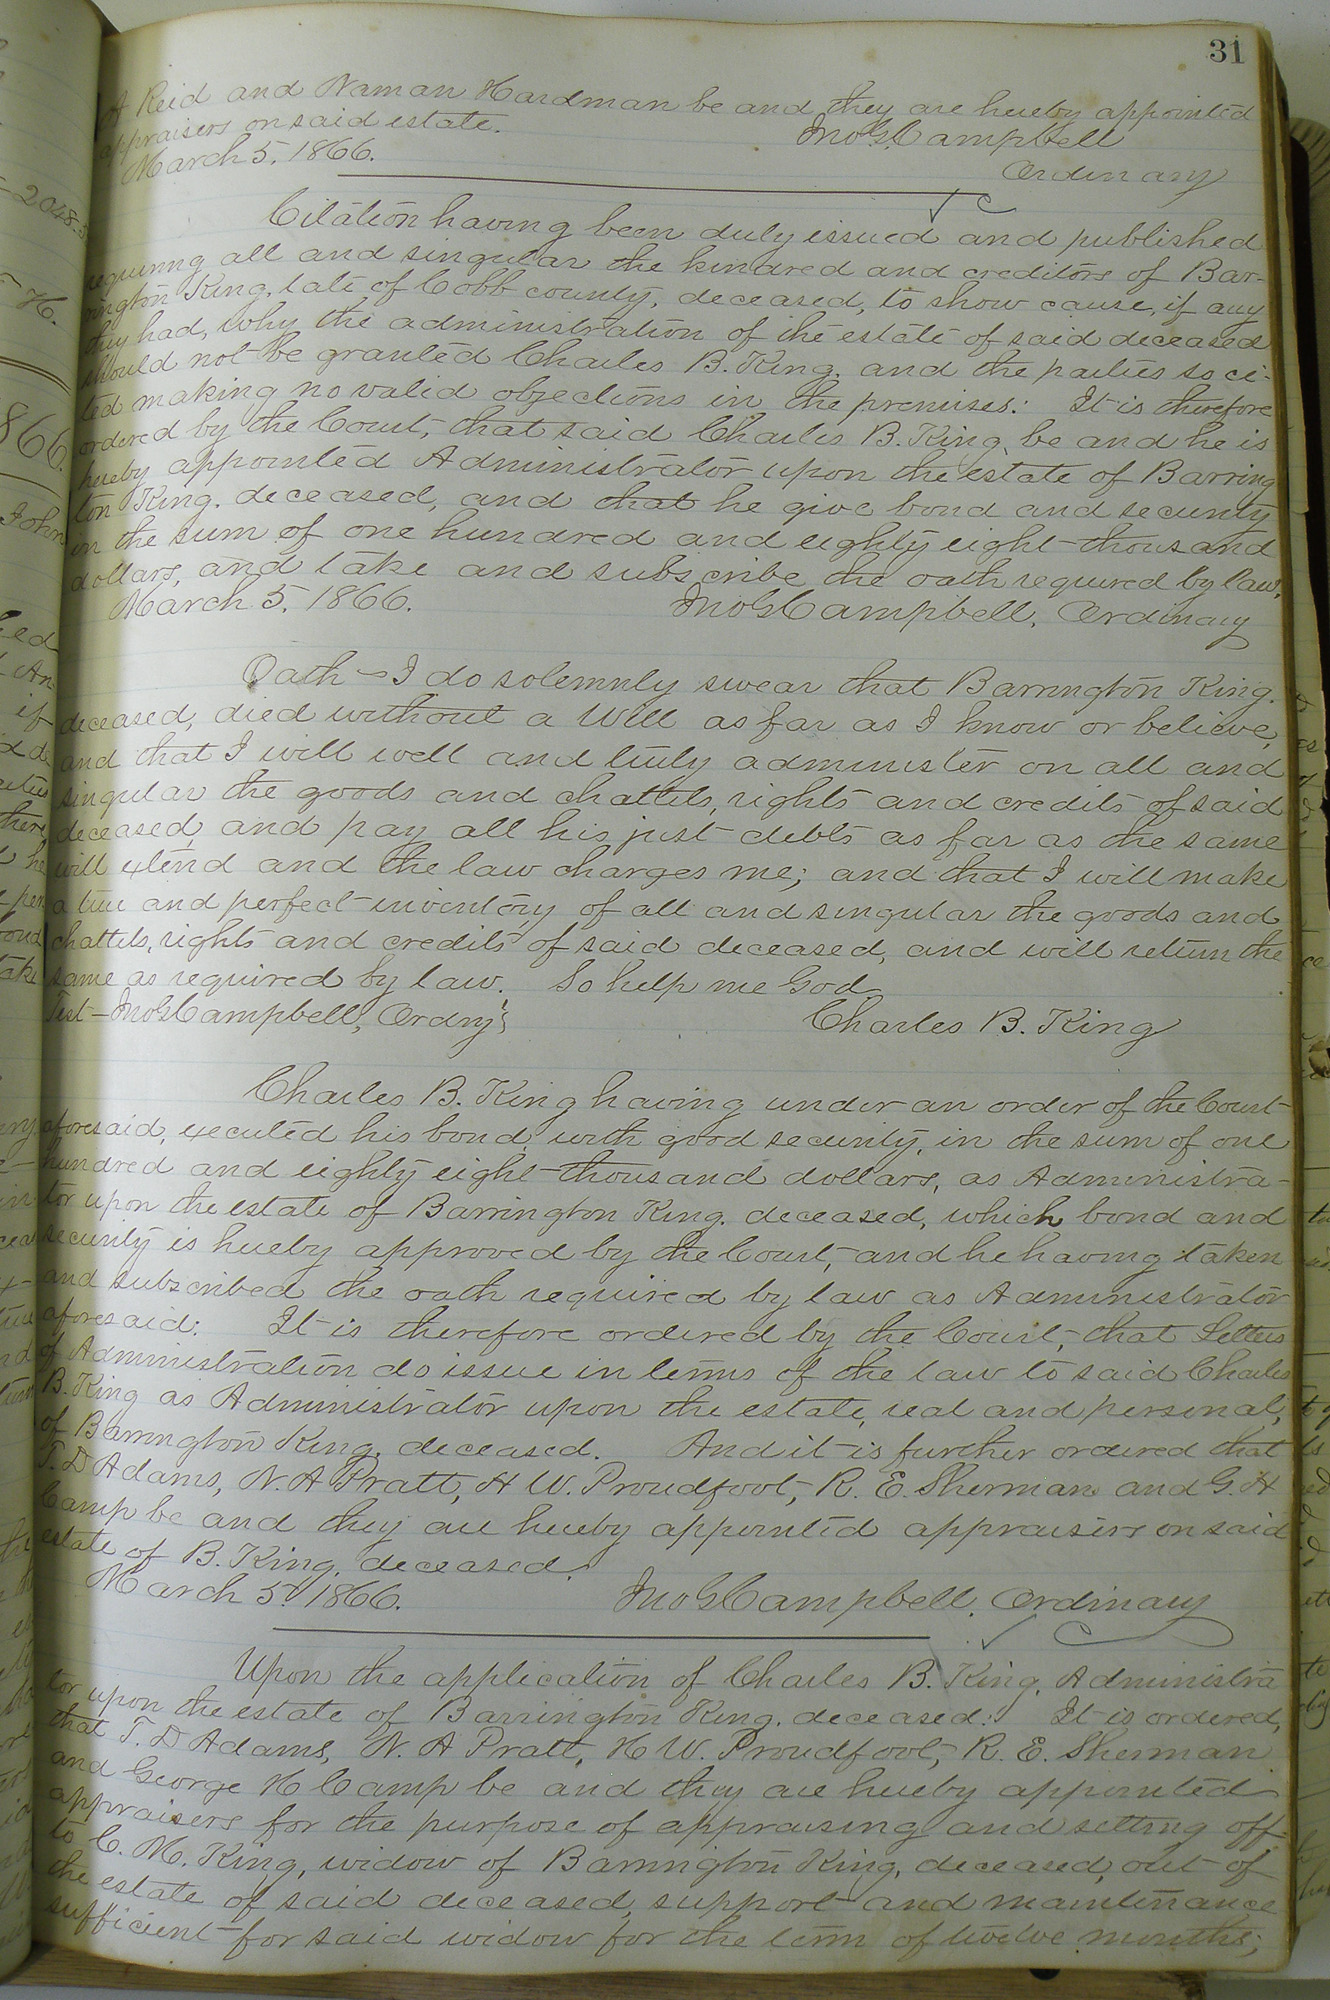 31
A Reid and Naman Hardman be and they are hereby appointed
appraisers on said estate. Jno G Campbell
March 5, 1866. Ordinary
Citation having been duly issued and published
requiring all and singular the kindred and creditors of Bar-
rington King, late of Cobb county, deceased, to show cause, if any
they had, why the administration of the estate of said deceased
should not be granted Charles B. King, and the parties so ci-
ted making no valid objections in the premises: It is therefore
ordered by the Court, that said Charles B. King be and he is
hereby appointed Administrator upon the estate of Barring
ton King, deceased, and that he give bond and security
in the sum of one hundred and eighty eight thousand
dollars, and take and subscribe the oath required by law,
March 5, 1866. Jno G Campbell, Ordinary
Oath - I do solemnly swear that Barrington King,
deceased, died without a Will as far as I know or believe,
and that I will well and truly administer on all and
singular the goods and chattels, rights and credits of said
deceased, and pay all his just debts as far as the same
will extend and the law charges me; and that I will make
a true and perfect inventory of all and singular the goods and
chattels, rights and credits of said deceased, and will return the
same as required by law. So help me God
Test - Jno G Campbell, Ordry Charles B. King
Charles B. King having under an order of the Court
aforesaid, executed his bond with good security, in the sum of one
hundred and eighty eight thousand dollars, as Administra-
tor upon the estate of Barrington King, deceased, which bond and
security is hereby approved by the Court, and he having taken
and subscribed the oath required by law as Administrator
aforesaid: It is therefore ordered by the Court, that Letters
of Administration do issue in terms of the law to said Charles
B. King as Administrator upon the estate, real and personal,
of Barrington King, deceased. And it is further ordered that
T. D Adams, N. A Pratt, H W. Proudfoot, R. E. Sherman and G. H
Camp be and they are hereby appointed appraisers on said
estate of B. King, deceased.
March 5, 1866. Jno G Campbell, Ordinary
Upon the application of Charles B. King, Administra
tor upon the estate of Barrington King, deceased: It is ordered,
that T. D Adams, N. A Pratt, H W. Proudfoot, R. E. Sherman
and George H Camp be and they are hereby appointed
appraisers for the purpose of appraising and setting off
to C. M. King, widow of Barrington King, deceased, out of
the estate of said deceased, support and maintenance
sufficient for said widow for the term of twelve months;